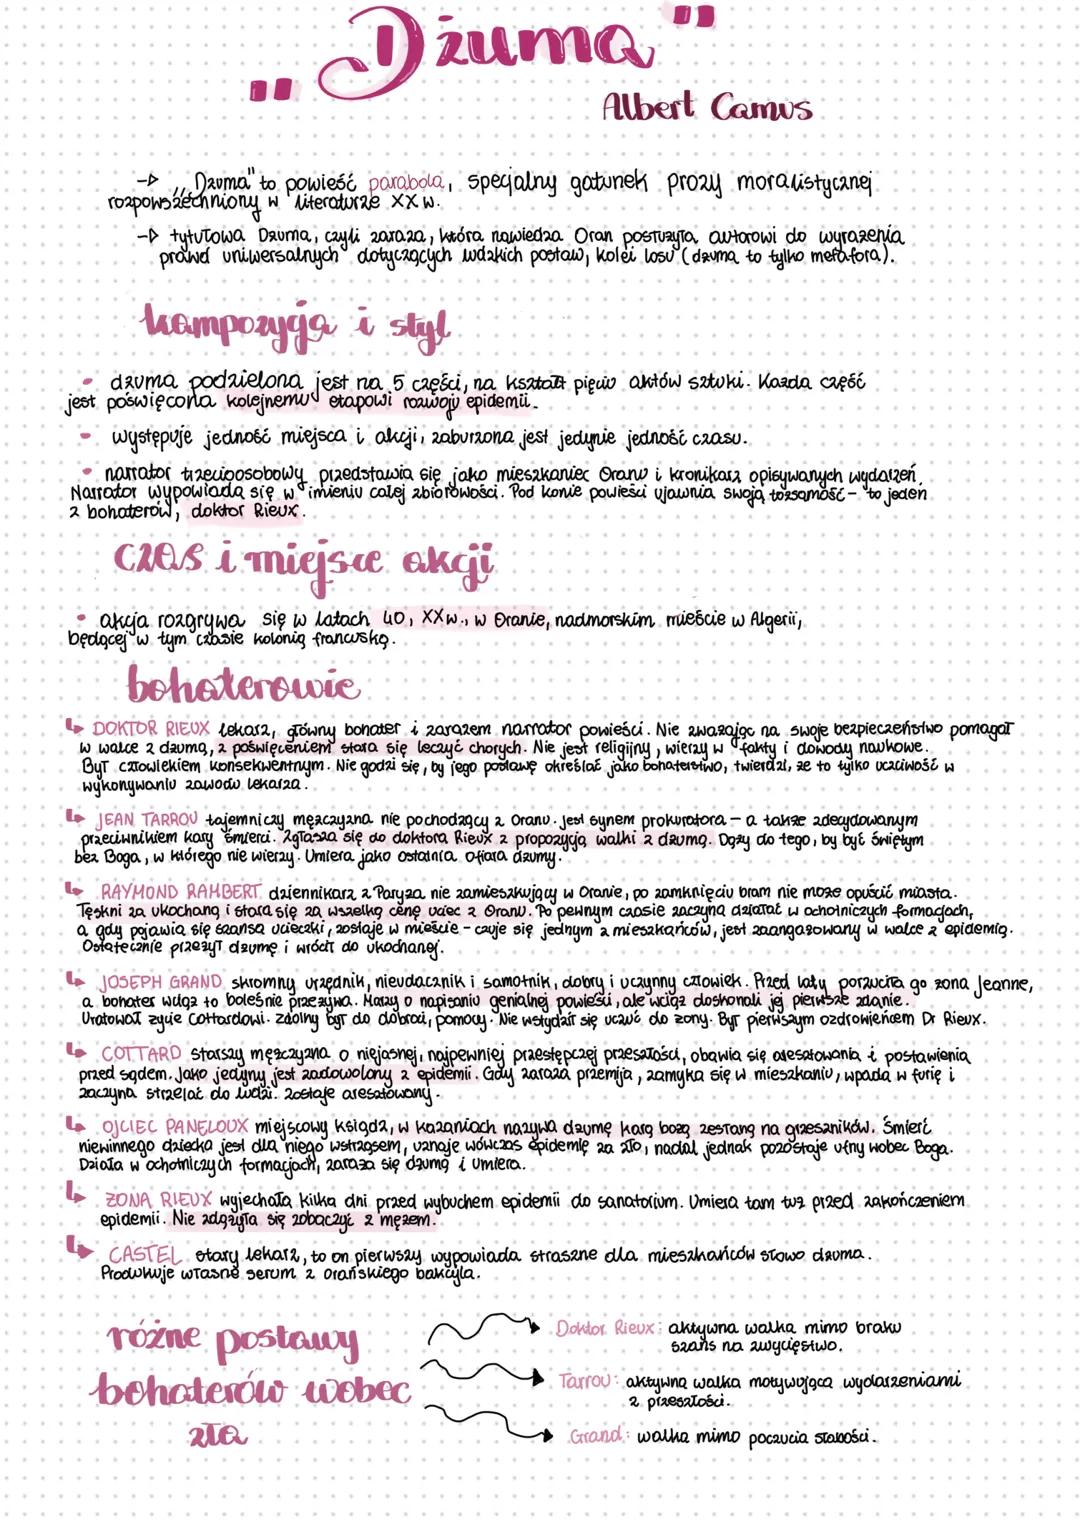 „Dżuma"
Albert Camus
→ „Dżuma" to powieść parabola, specjalny gatunek prozy moralistycznej
rozpowszechniony w literaturze XX w.
→ tytułowa Dżuma, czyli zaraza, która nawiedza Oran posłużyła autorowi do wyrażenia
prawd uniwersalnych dotyczących ludzkich postaw, kolei losu (dżuma to tylko metafora).
kompozycja i styl
• dżuma podzielona jest na 5 części, na kształt pięciu aktów sztuki. Każda część
jest poświęcona kolejnemu etapowi rozwoju epidemii.
• występuje jedność miejsca i akcji, zaburzona jest jedynie jedność czasu.
• narrator trzecioosobowy przedstawia się jako mieszkaniec Oranu i kronikarz opisywanych wydarzeń.
Narrator wypowiada się w imieniu całej zbiorowości. Pod konie powieści ujawnia swoją tożsamość – to jeden
z bohaterów, doktor Rieux.
czas i miejsce akcji
• akcja rozgrywa się w latach 40, XXw., w Oranie, nadmorskim mieście w Algerii,
będącej w tym czasie kolonią francuską.
bohaterowie
↳ DOKTOR RIEUX lekarz, główny bohater i zarazem narrator powieści. Nie zważając na swoje bezpieczeństwo pomagał
w walce z dżumą, z poświęceniem stara się leczyć chorych. Nie jest religijny, wierzy w fakty i dowody naukowe.
Był człowiekiem konsekwentnym. Nie godzi się, by jego postawę określać jako bohaterstwo, twierdzi, że to tylko uczciwość w
wykonywaniu zawodu lekarza.
↳ JEAN TARROU tajemniczy mężczyzna nie pochodzący z Oranu. jest synem prokuratora – a także zdecydowanym
przeciwnikiem kary śmierci. Zgłasza się do doktora Rieux z propozycją walki z dżumą. Dąży do tego, by być świętym
bez Boga, w którego nie wierzy. Umiera jako ostatnia ofiara dżumy.
↳ RAYMOND RAMBERT dziennikarz z Paryża nie zamieszkujący w Oranie, po zamknięciu bram nie może opuścić miasta.
Tęskni za ukochaną i stara się za wszelką cenę uciec z Oranu. Po pewnym czasie zaczyna działać w ochotniczych formacjach,
a gdy pojawia się szansa ucieczki, zostaje w mieście – czuje się jednym z mieszkańców, jest zaangażowany w walce z epidemią.
Ostatecznie przeżył dżumę i wrócił do ukochanej.
↳ JOSEPH GRAND skromny urzędnik, nieudacznik i samotnik, dobry i uczynny człowiek. Przed laty porzuciła go żona Jeanne,
a bohater wciąż to boleśnie przeżywa. Marzy o napisaniu genialnej powieści, ale wciąż doskonali jej pierwsze zdanie.
Uratował życie Cottardowi. Zdolny był do dobroci, pomocy. Nie wstydził się uczuć do żony. Był pierwszym ozdrowieńcem Dr Rieux.
↳ COTTARD starszy mężczyzna o niejasnej, najpewniej przestępczej przeszłości, obawia się aresztowania i postawienia
przed sądem. Jako jedyny jest zadowolony z epidemii. Gdy zaraza przemija, zamyka się w mieszkaniu, wpada w furię i
zaczyna strzelać do ludzi. Zostaje aresztowany.
↳ OJCIEC PANELOUX miejscowy ksiądz, w kazaniach nazywa dżumę karą bożą zesłaną na grzeszników. Śmierć
niewinnego dziecka jest dla niego wstrząsem, uznaje wówczas epidemię za zło, nadal jednak pozostaje ufny wobec Boga.
Działa w ochotniczych formacjach, zaraża się dżumą i umiera.
↳ ŻONA RIEUX wyjechała kilka dni przed wybuchem epidemii do sanatorium. Umiera tam tuż przed zakończeniem
epidemii. Nie zdążyła się zobaczyć z mężem.
↳ CASTEL stary lekarz, to on pierwszy wypowiada straszne dla mieszkańców słowo dżuma.
Produkuje własne serum z orańskiego bakcyla.
różne postawy
bohaterów wobec
zła
Doktor Rieux: aktywna walka mimo braku
szans na zwycięstwo.
Tarrou: aktywna walka motywująca wydarzeniami
z przeszłości.
Grand: walka mimo poczucia słabości.